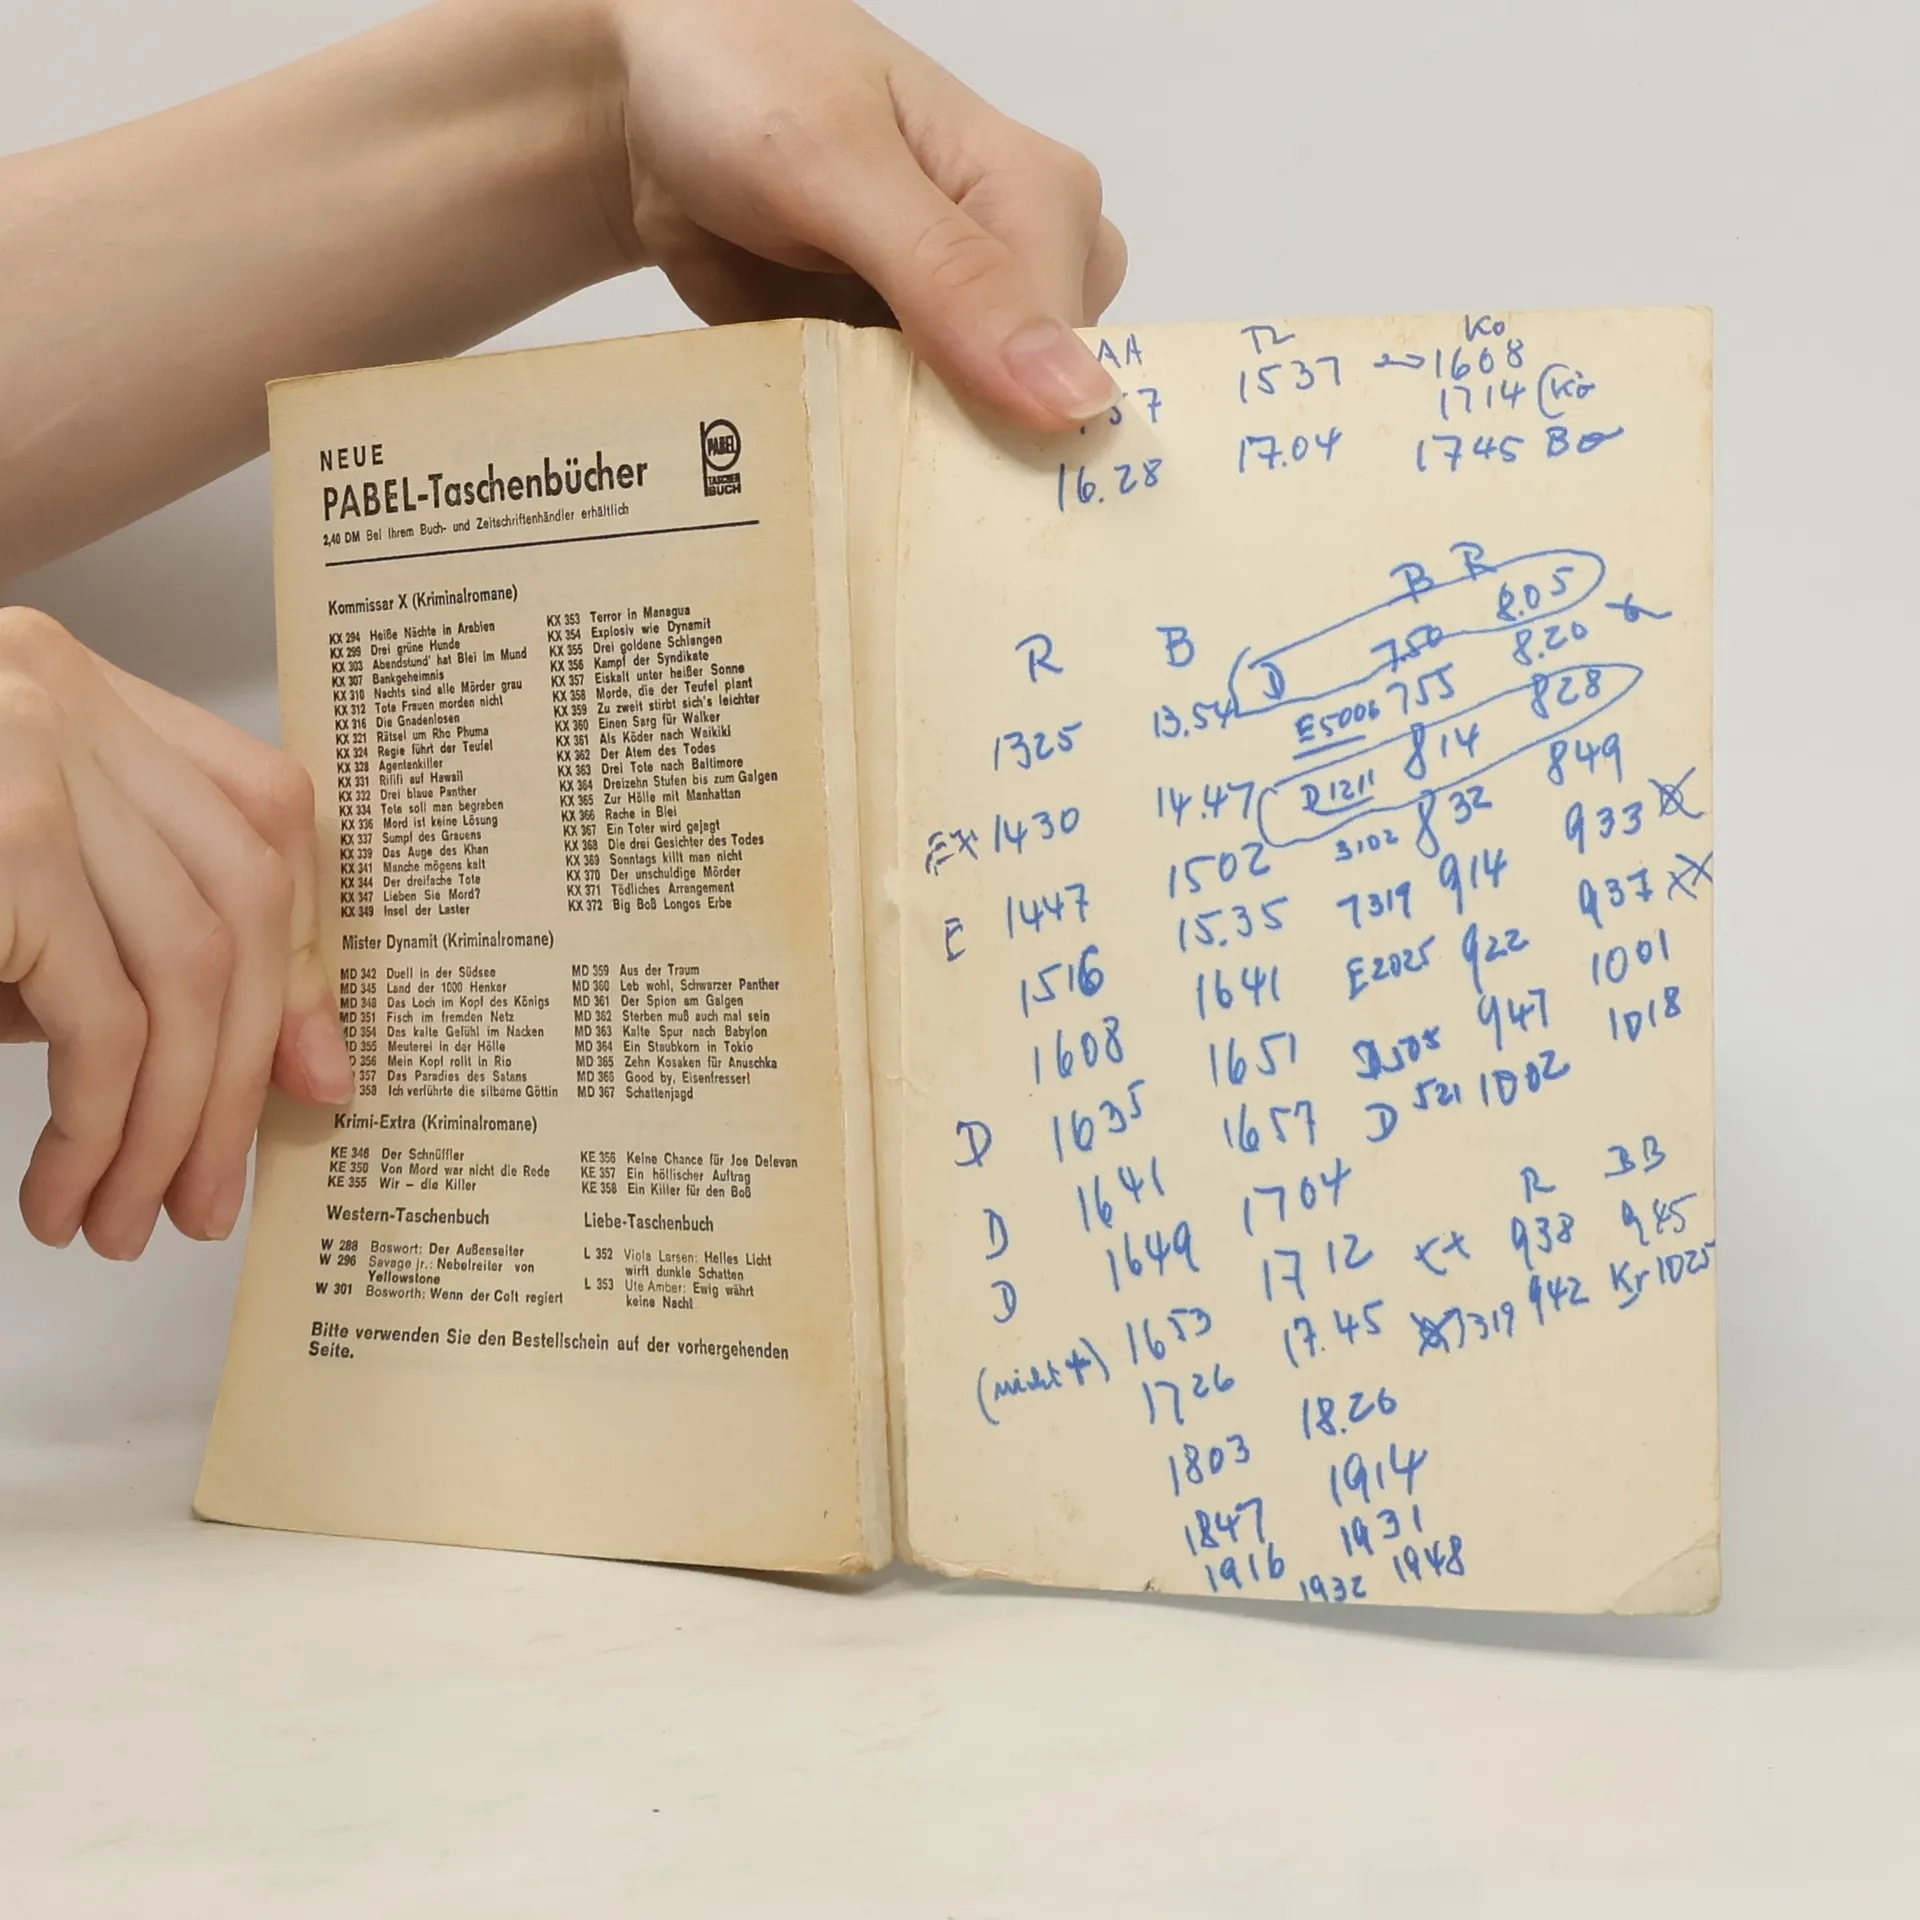 NEUE
PABEL-Taschenbücher
PABEL
TASCHEN
BUCH
2,40 DM Bei Ihrem Buch- und Zeitschriftenhändler erhältlich
Kommissar X (Kriminalromane)
KX 294 Heiße Nächte in Arabien
KX 299 Drei grüne Hunde
KX 303 Abendstund' hat Blei im Mund
KX 307 Bankgeheimnis
KX 310 Nachts sind alle Mörder grau
KX 312 Tote Frauen morden nicht
KX 316 Die Gnadenlosen
KX 321 Rätsel um Rho Phuma
KX 324 Regie führt der Teufel
KX 328 Agentenkiller
KX 331 Rififi auf Hawaii
KX 332 Drei blaue Panther
KX 334 Tote soll man begraben
KX 336 Mord ist keine Lösung
KX 337 Sumpf des Grauens
KX 339 Das Auge des Khan
KX 341 Manche mögens kalt
KX 344 Der dreifache Tote
KX 347 Lieben Sie Mord?
KX 349 Insel der Laster
KX 353 Terror in Managua
KX 354 Explosiv wie Dynamit
KX 355 Drei goldene Schlangen
KX 356 Kampf der Syndikate
KX 357 Eiskalt unter heißer Sonne
KX 358 Morde, die der Teufel plant
KX 359 Zu zweit stirbt sich's leichter
KX 360 Einen Sarg für Walker
KX 361 Als Köder nach Waikiki
KX 362 Der Atem des Todes
KX 363 Drei Tote nach Baltimore
KX 364 Dreizehn Stufen bis zum Galgen
KX 365 Zur Hölle mit Manhattan
KX 366 Rache in Blei
KX 367 Ein Toter wird gejagt
KX 368 Die drei Gesichter des Todes
KX 369 Sonntags killt man nicht
KX 370 Der unschuldige Mörder
KX 371 Tödliches Arrangement
KX 372 Big Boß Longos Erbe
Mister Dynamit (Kriminalromane)
MD 342 Duell in der Südsee
MD 345 Land der 1000 Henker
MD 348 Das Loch im Kopf des Königs
MD 351 Fisch im fremden Netz
MD 354 Das kalte Gefühl im Nacken
D 355 Meuterei in der Hölle
356 Mein Kopf rollt in Rio
357 Das Paradies des Satans
358 Ich verführte die silberne Göttin
MD 359 Aus der Traum
MD 360 Leb wohl, Schwarzer Panther
MD 361 Der Spion am Galgen
MD 362 Sterben muß auch mal sein
MD 363 Kalte Spur nach Babylon
MD 364 Ein Staubkorn in Tokio
MD 365 Zehn Kosaken für Anuschka
MD 366 Good by, Eisenfresser!
MD 367 Schattenjagd
Krimi-Extra (Kriminalromane)
KE 346 Der Schnüffler
KE 350 Von Mord war nicht die Rede
KE 355 Wir – die Killer
KE 356 Keine Chance für Joe Delevan
KE 357 Ein höllischer Auftrag
KE 358 Ein Killer für den Boß
Western-Taschenbuch
W 288 Boswort: Der Außenseiter
W 296 Savage jr.: Nebelreiter von
Yellowstone
W 301 Bosworth: Wenn der Colt regiert
Liebe-Taschenbuch
L 352 Viola Larsen: Helles Licht
wirft dunkle Schatten
L 353 Ute Amber: Ewig währt
keine Nacht
Bitte verwenden Sie den Bestellschein auf der vorhergehenden
Seite.
AA Ko
57 1537 1608
1714 (Kö
16.28 17.04 1745 Bo
B R
R B D 750 8.05
1325 13.54 E5006 755 8.20
Ex 1430 14.47 D1211 814 828
E 1447 1502 3102 832 849
1516 15.35 7319 914 933
1608 1641 E2025 922 937 xx
D 1635 1651 D505 947 1001
D 1641 1657 D 521 1002 1018
D 1649 1704 R BB
(nicht +) 1653 1712 xx 938 945
1726 17.45 7319 942 Kr 1025
1803 18.26
1847 1914
1916 1931
1932 1948